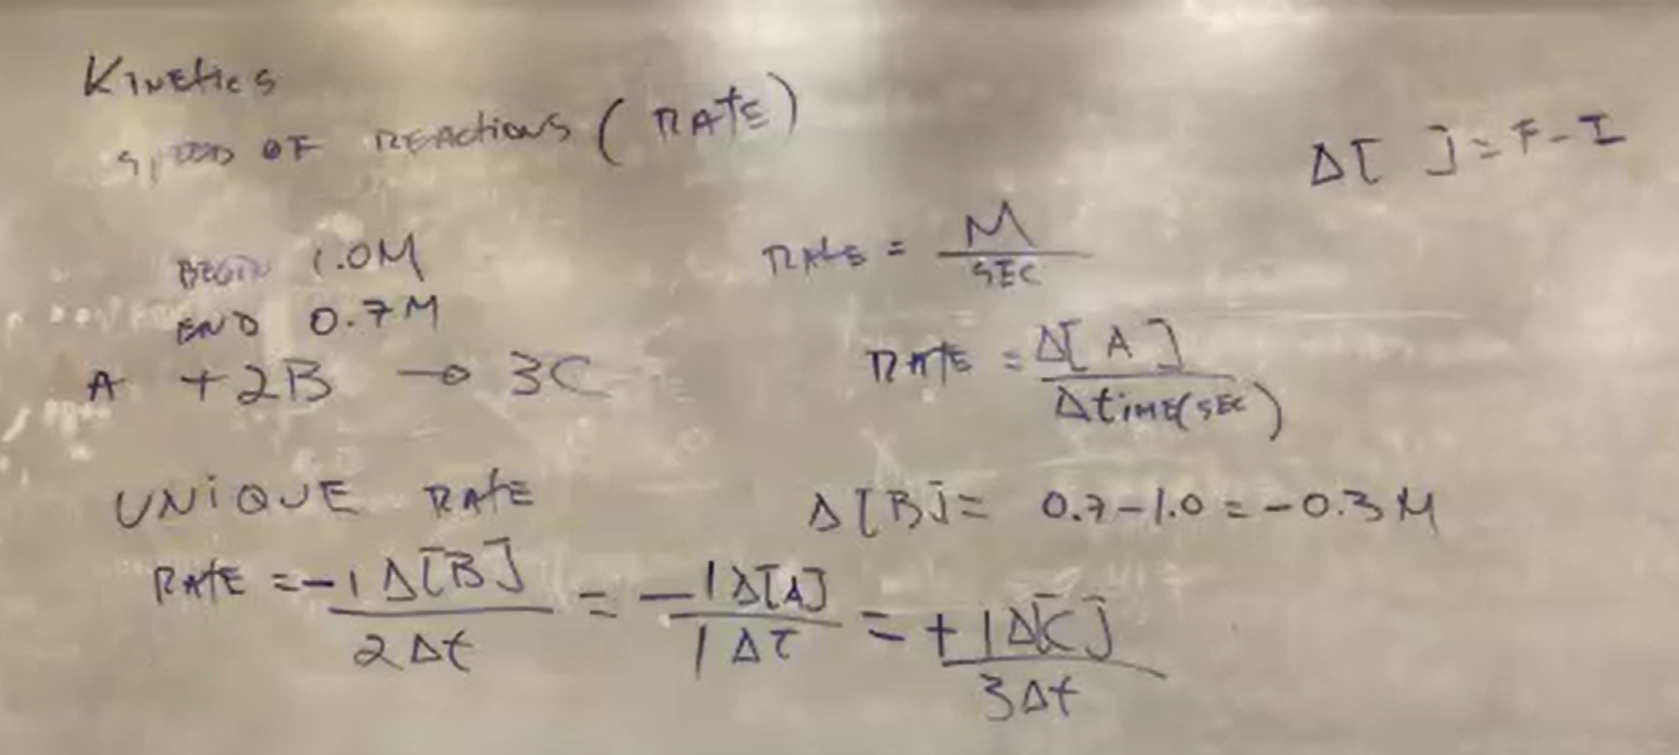 Kinetics
SPEED OF REACTIONS (RATE)
Δ[ ] = F - I
BEGIN 1.0M
RATE = M / SEC
END 0.7M
A + 2B → 3C
RATE = Δ[A] / Δtime(SEC)
UNIQUE RATE
Δ[B] = 0.7 - 1.0 = -0.3 M
RATE = -1Δ[B] / 2Δt = -1Δ[A] / 1Δt = +1Δ[C] / 3Δt